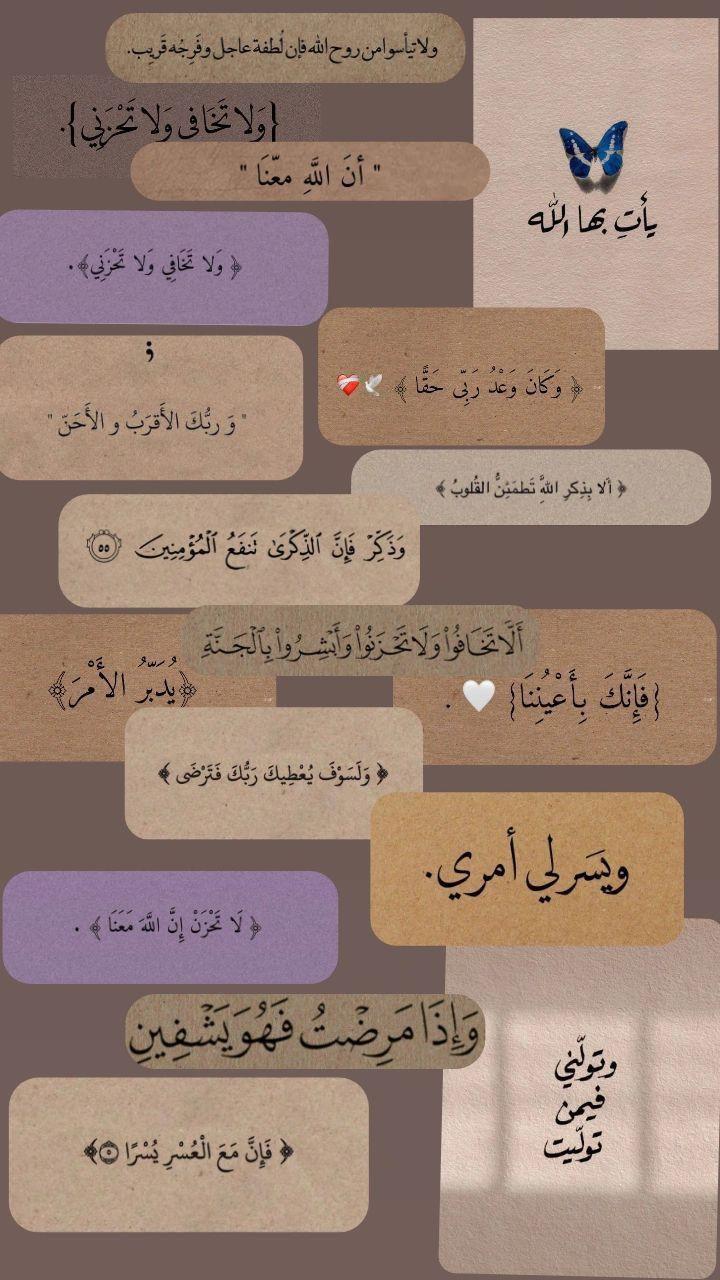 ولا تيأسوا من روح الله فإن لُطفة عاجل وفَرِجُه قَريب.
{وَلا تَخَافى وَلا تَحْزَنِي}.
" أنَ اللَّهِ معّنَا "
يأتِ بها الله
﴿ وَلا تَخَافِي وَلا تَحْزَنِي﴾ .
﴿ وَكَانَ وَعْدُ رَبِّى حَقًّا ﴾ 🕊️❤️‍🩹
؛
" وَ ربُّكَ الأَقرَبُ و الأَحَنّ "
﴿ ألا بِذِكرِ اللَّهِ تَطمَئِنُّ القُلوبُ ﴾
وَذَكِّرْ فَإِنَّ ٱلذِّكْرَىٰ تَنفَعُ ٱلْمُؤْمِنِينَ ٥٥
أَلَّا تَخَافُوا۟ وَلَا تَحْزَنُوا۟ وَأَبْشِرُوا۟ بِٱلْجَنَّةِ
﴿يُدَبِّرُ الأَمْرَ﴾
{فَإِنَّكَ بِأَعْيُنِنَا} 🤍 .
﴿ وَلَسَوْفَ يُعْطِيكَ رَبُّكَ فَتَرْضَى ﴾
ويسَرلي أمري.
﴿ لَا تَحْزَنْ إِنَّ اللَّهَ مَعَنَا ﴾ .
وَإِذَا مَرِضْتُ فَهُوَ يَشْفِينِ
وتولّني
فيمن
تولّيت
﴿ فَإِنَّ مَعَ الْعُسْرِ يُسْرًا ٥﴾